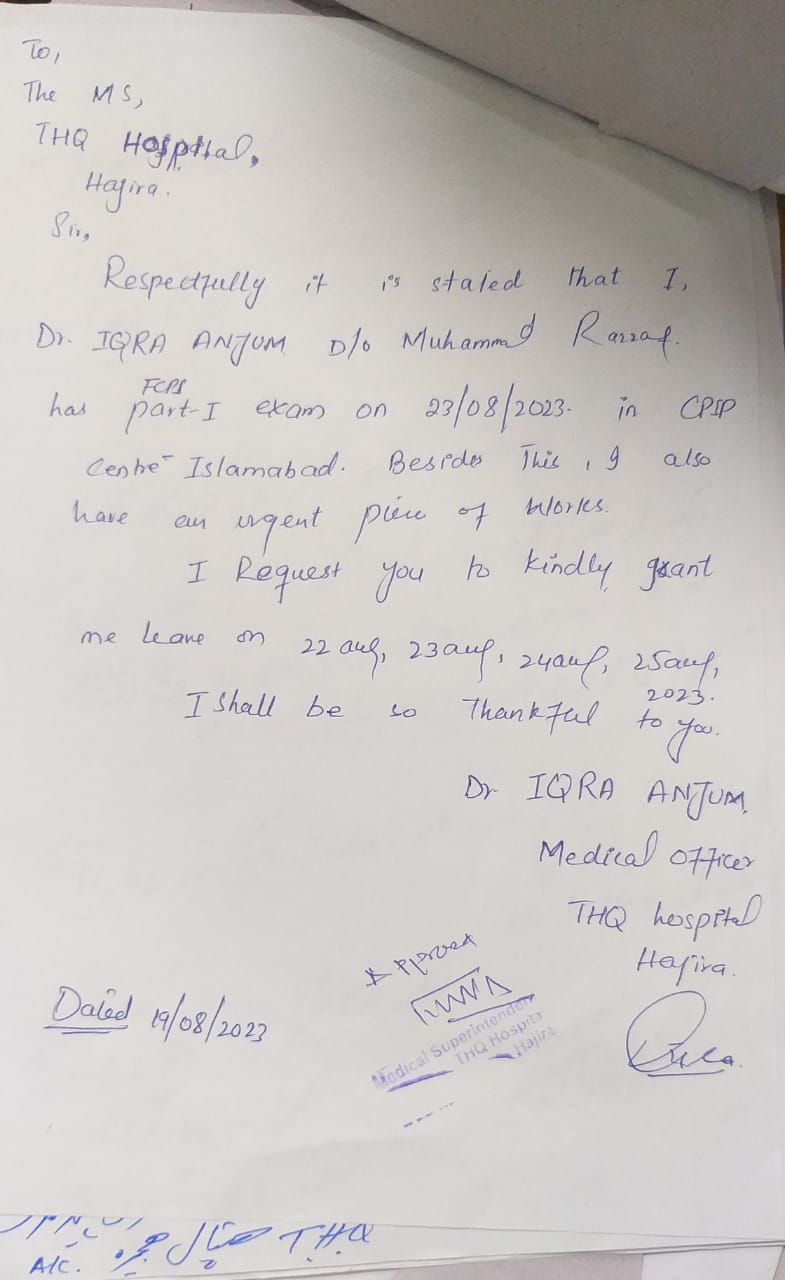 To,
The MS,
THQ Hospital,
Hajira.
Sir,
Respectfully it is stated that I,
Dr. IQRA ANJUM D/o Muhammad Razzaq.
has FCPS part-I exam on 23/08/2023. in CPSP
Centre Islamabad. Besides This, I also
have an urgent piece of works.
I Request you to kindly grant
me leave on 22 aug, 23 aug, 24 aug, 25 aug,
2023.
I shall be so Thankful to you.
Dr IQRA ANJUM,
Medical Officer
THQ hospital
Hajira.
Approved
Medical Superintendent
THQ Hospita
Hajira
Dated 19/08/2023
THQ
A/C.